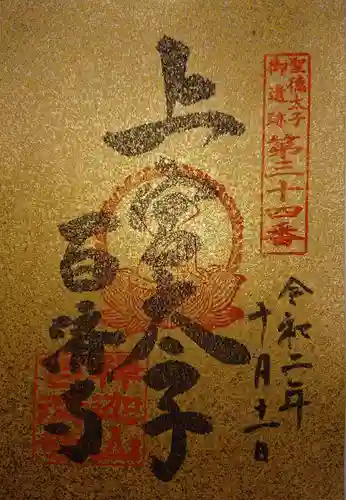 聖徳太子
御遺跡
第三十四番
上宮太子
百濟寺
令和二年
十月十一日